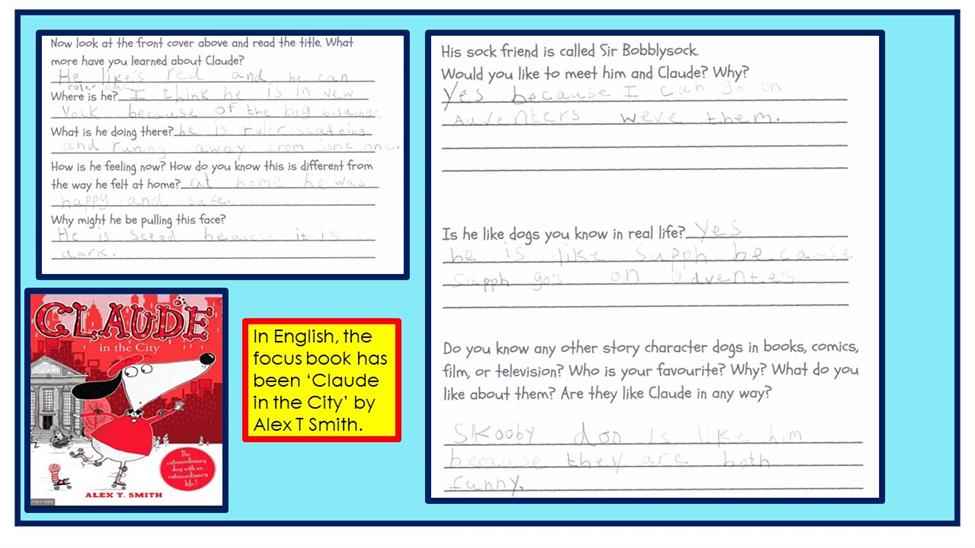 Now look at the front cover above and read the title. What
more have you learned about Claude?
He like's red and he can
roler
Where is he? I think he is in new
Yock because of the big bildings.
What is he doing there? he is roler scatering
and runing away from some one.
How is he feeling now? How do you know this is different from
the way he felt at home? at home he was
happy and safe.
Why might he be pulling this face?
He is Scead because it is
dark.
CLAUDE
in the City
The
extraordinary
dog with an
extraordinary
life!
ALEX T. SMITH
In English, the
focus book has
been ‘Claude
in the City’ by
Alex T Smith.
His sock friend is called Sir Bobblysock.
Would you like to meet him and Claude? Why?
Yes because I can go on
Adventers weve them.
Is he like dogs you know in real life? Yes
he is like Sapph because
Sapph go's on adventes
Do you know any other story character dogs in books, comics,
film, or television? Who is your favourite? Why? What do you
like about them? Are they like Claude in any way?
Skooby doo is like him
because they are both
funny.